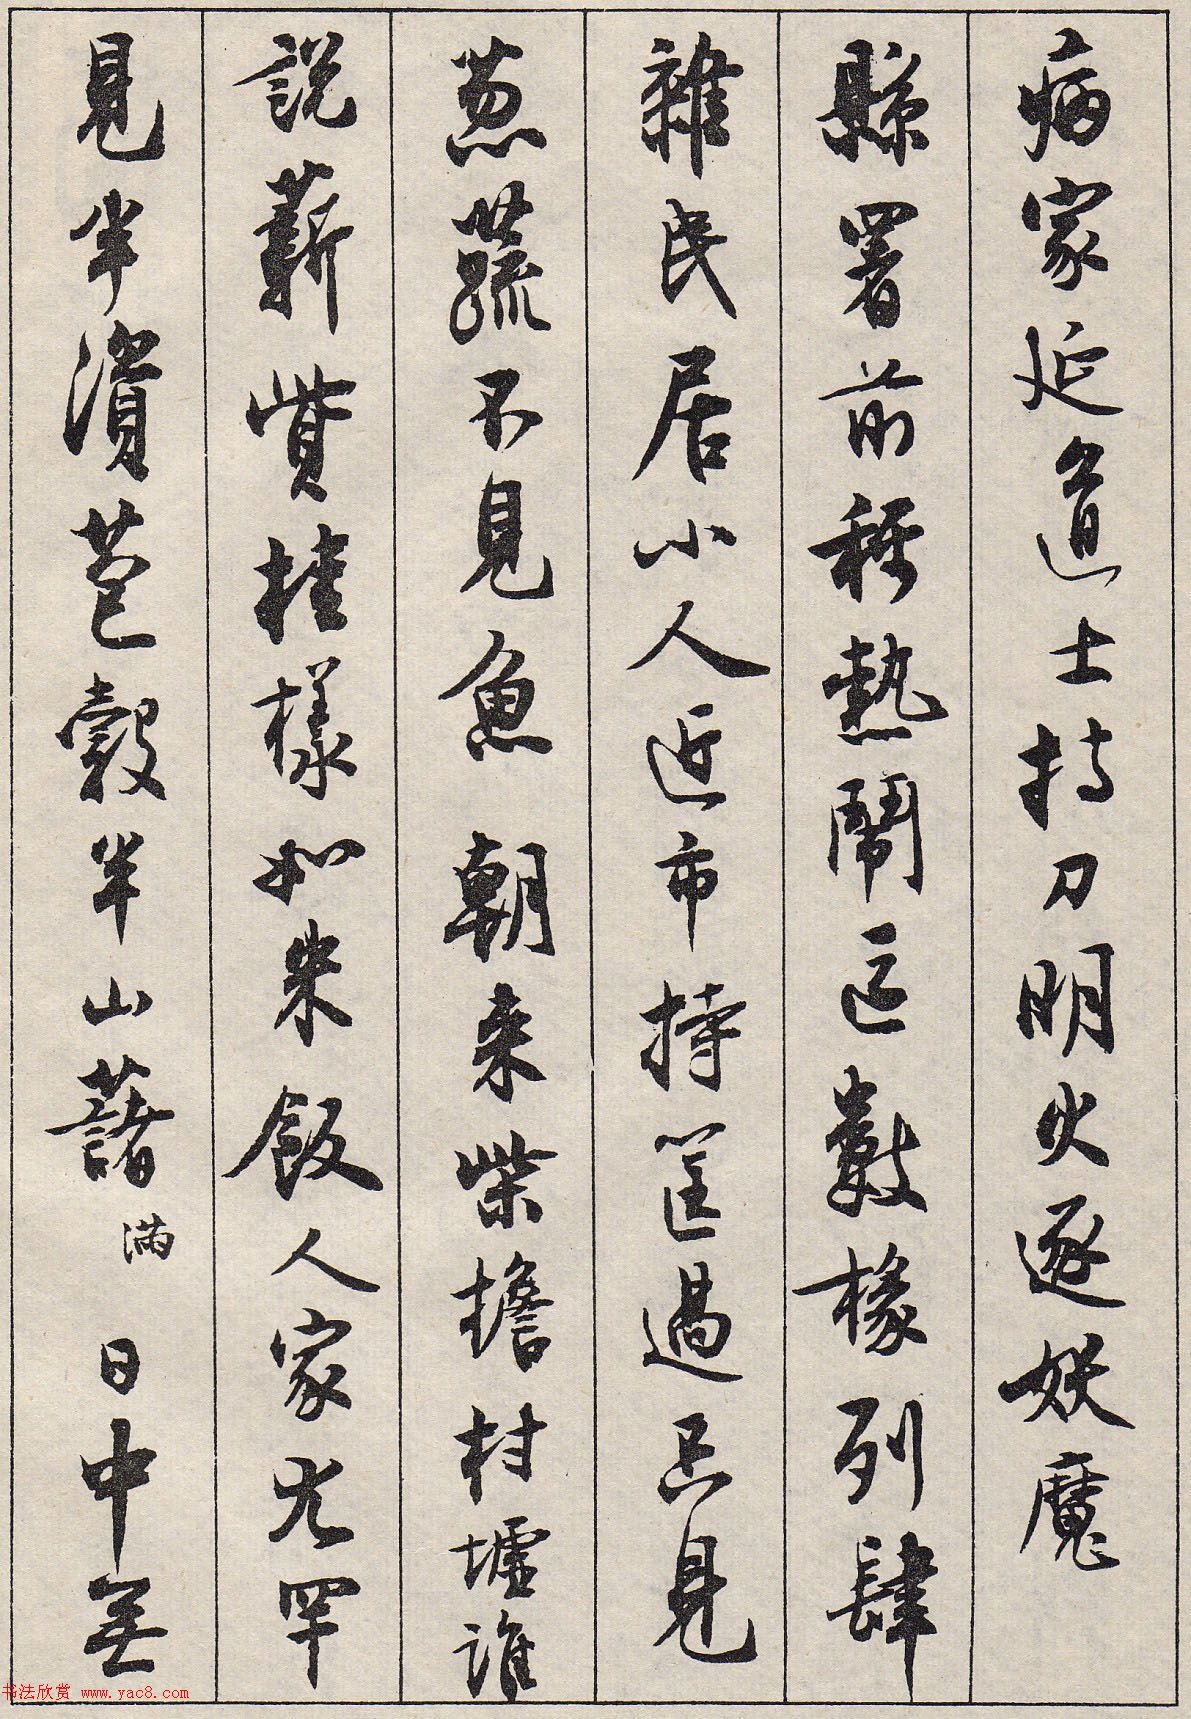 病家延道士持刀明火逐妖魔
縣署前稱熱鬧區數椽列肆
雜民居小人近市持筐過只見
葱蔬不見魚 朝来柴擔村墟誰
說薪貲桂樣如米飯人家尤罕
見半瀆苞穀半山藷滿 日中無
书法欣赏 www.yac8.com